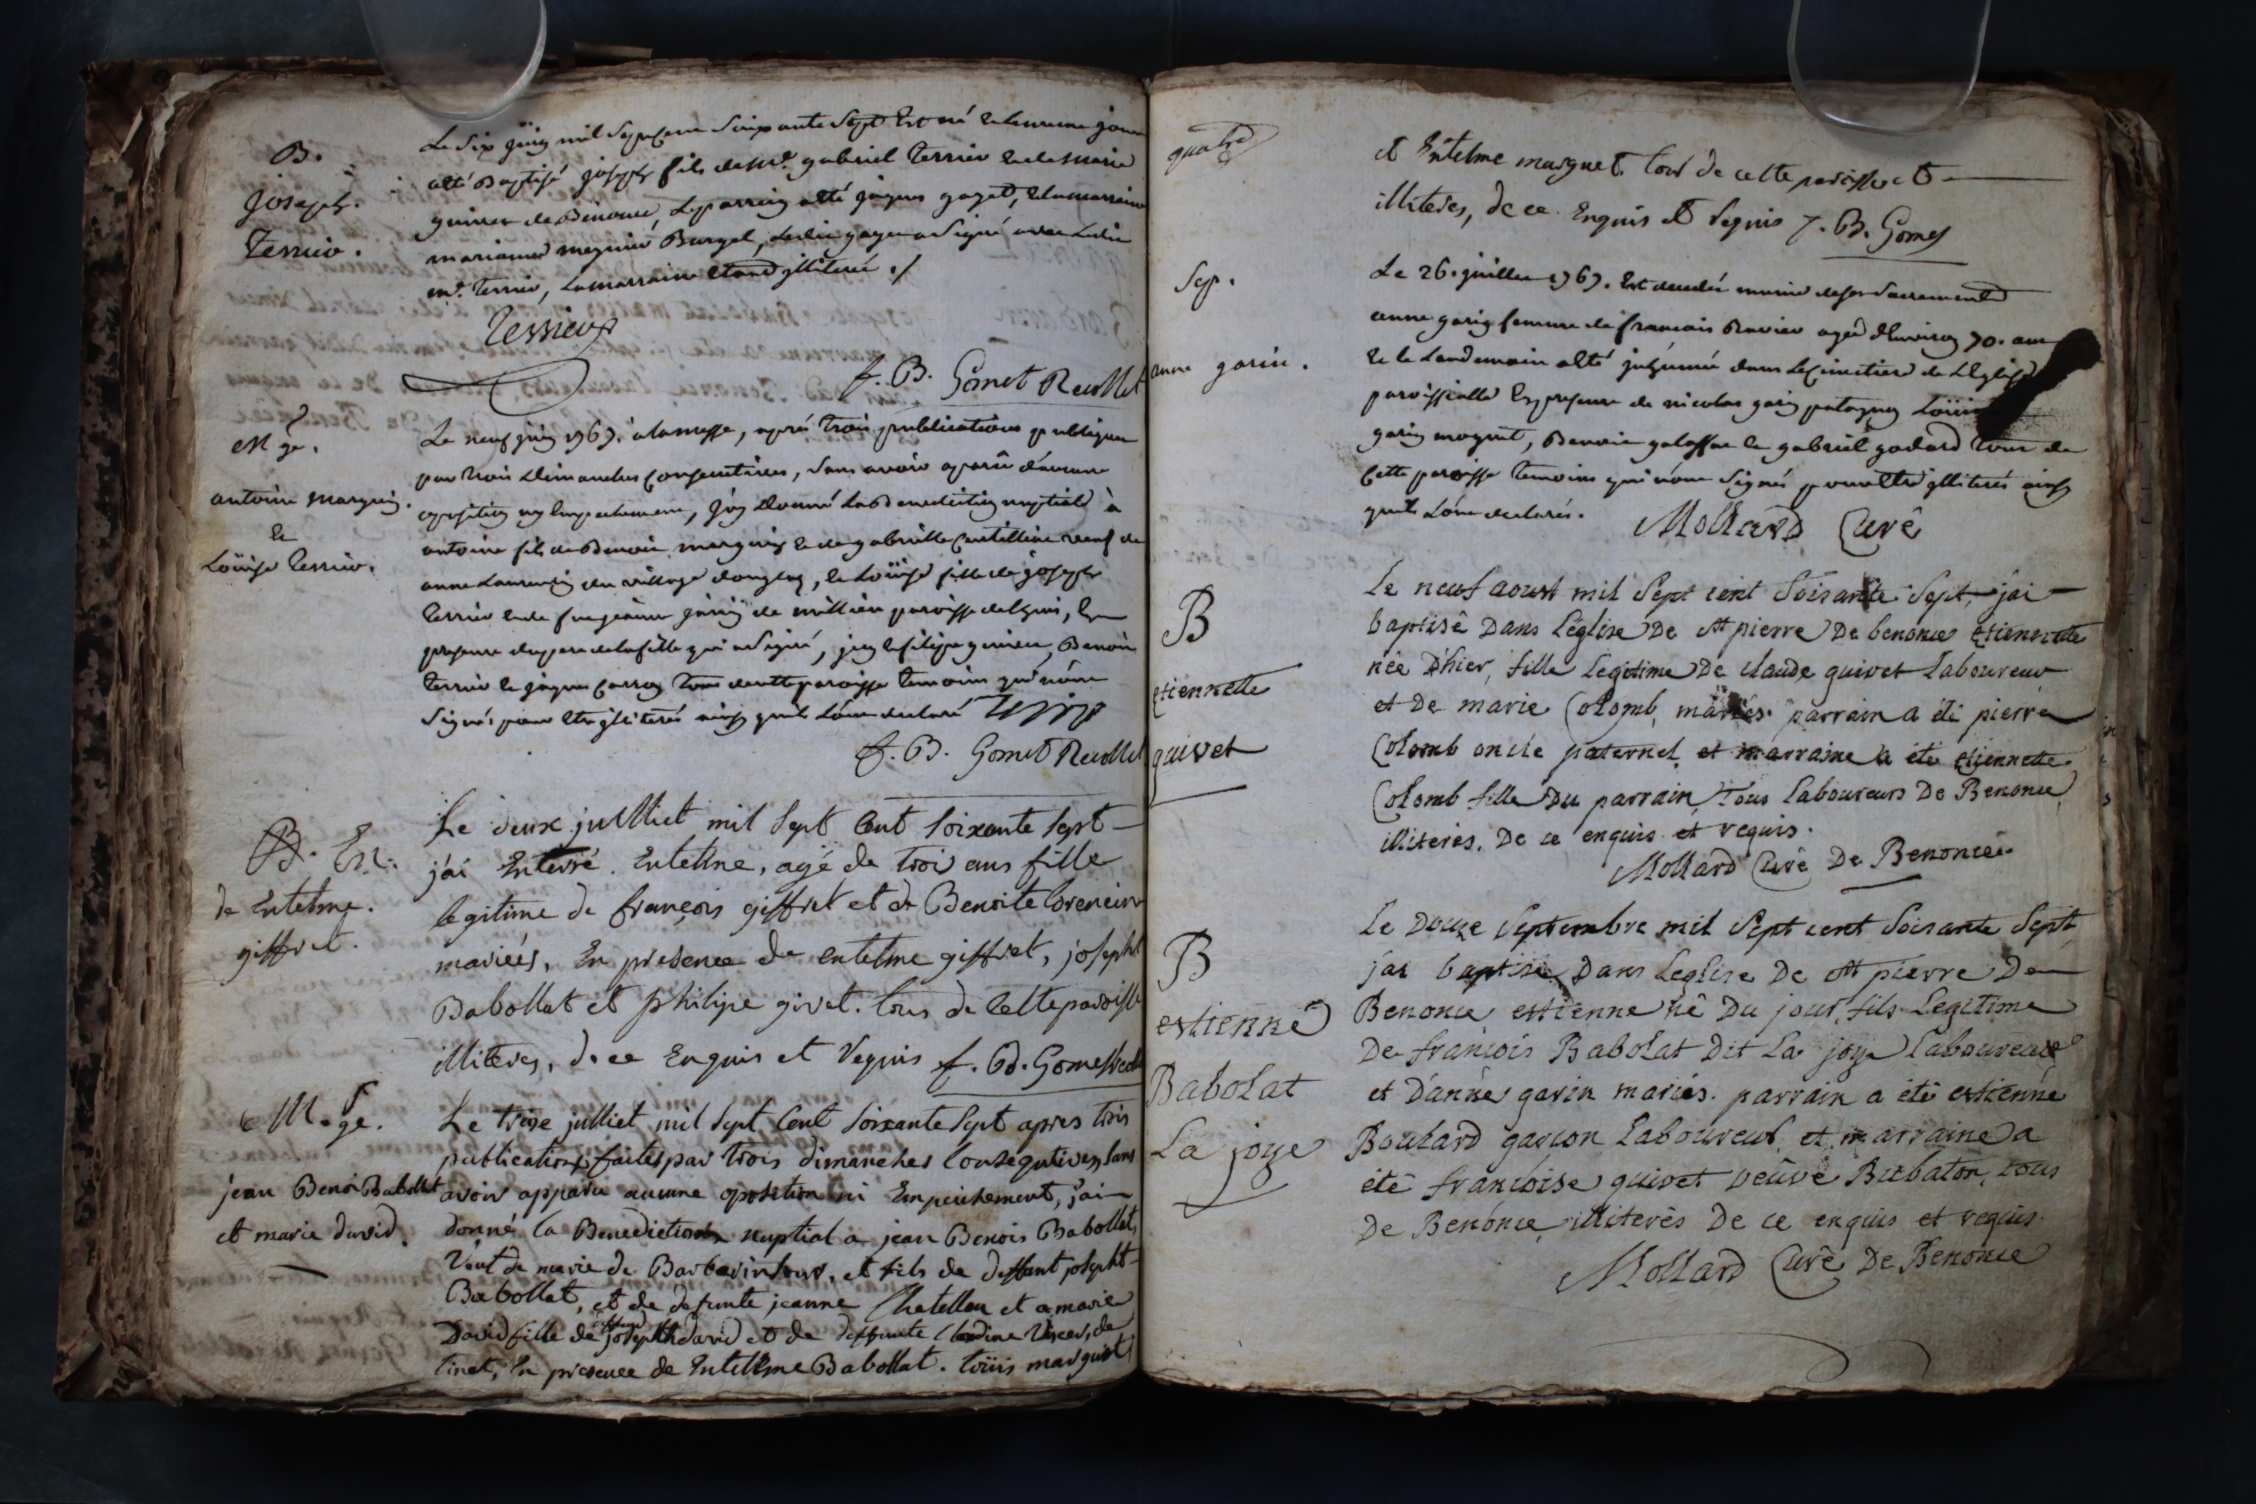 B.
joseph.
terrier.
Le six juin mil sept cent soixante sept Est né Et le meme jour
a Eté Baptisé joseph fils de Mr. gabriel terrier Et de Marie
guivet de Benonce, Le parrain a Eté jaques gayet, Et la marraine
mariane Burgel, Ledit a Signé avec Ledit
mr. terrier, La marraine Etand jlliterée ./.
terrier
f. B. Gomet Recollet
M ge.
antoine marguin.
Et
Loüise terrier.
Le neuf juin 1767. a la messe, aprés trois publications publiques
par trois dimanches consecutives, sans avoir aparû d'aucune
oposition ny Empechement, j'ay donné La Benediction nuptiale à
antoine fils de Benoit marguin et de gabrielle veuf de
anne Laurencin du village, Et Loüise fille de joseph
terrier Et de feue jeanne paroisse, En
presence du pere de la fille qui a Signé, Benoit
terrier Et jaques tous de cette paroisse temoins qui n'ônt
Signés pour Etre jlliterés ainsy qu'ils L'ônt declaré
f. B. Gomet Recollet
B. En.
de Entelme.
giffret.
Le deux julliet mil sept cent soixante sept
j'ai Enterré. Entelme, agé de trois ans fille
legitime de françois giffret et de Benoite lorencin
mariées, En presence de entelme giffret, josepht
Babollat et philipe givet. tous de cette paroisse
illiteres, de ce Enquis et Requis f. B. Gomet Recollet
M. ge.
jean Benoi Babollat
et marie david.
Le treise julliet mil sept cent soixante sept apres trois
publications faites par trois dimanches consequtives, sans
avoir apparu aucune oposition ni Empeichement, j'ai
donné la Benediction nuptial a jean Benois Babollat,
Veuf de marie de, et fils de deffunt josepht
Babollat, et de defunte jeanne Chatellan et a marie
David fille de deffunt josepht david et de deffunte Claudine, de
tinet, En presence de Entelme Babollat. loüis marguet
quatre
et Entelme marguet, tous de cette paroisse et
illiteres, de ce Enquis et Requis f. B. Gomet
Sep.
anne garin.
Le 26. juillet 1767. Est decedée munie de ses Sacrements
anne garin femme de francois Ravier agée d'Environ 70. ans
Et le Landemain a Eté jnhumée dans Le Cimetiere de L'Eglise
paroissialle En presence de nicolas garin
garin, Benoit Et gabriel godard tous de
Cette paroisse temoins qui n'ônt Signés pour Etre jlliterés ainsy
qu'ils L'ônt declarés.
Mollard Curé
B
etiennette
guivet
Le neuf aoust mil Sept cent Soisante Sept, j'ai
baptisé Dans L'eglise De st pierre De benonce etiennette
née D'hier, fille Legitime De claude guivet Laboureur
et De marie Colomb, mariés. parrain a été pierre
Colomb oncle paternel, et marraine a été etiennette
Colomb fille Du parrain, tous Laboureurs De Benonce,
illiterés, De ce enquis et requis.
Mollard Curé De Benonce.
B
estienne
Babolat
La joye
Le Douze Septembre mil Sept cent Soisante Sept,
j'ai baptisé Dans Leglise De st pierre De
Benonce estienne né Du jour, fils Legitime
De francois Babolat Dit La joye Laboureur
et D'anne garin mariés. parrain a été estienne
Boulard garcon Laboureur, et marraine a
été francoise guivet veuve Babaton, tous
De Benonce, illiterés De ce enquis et requis.
Mollard Curé De Benonce